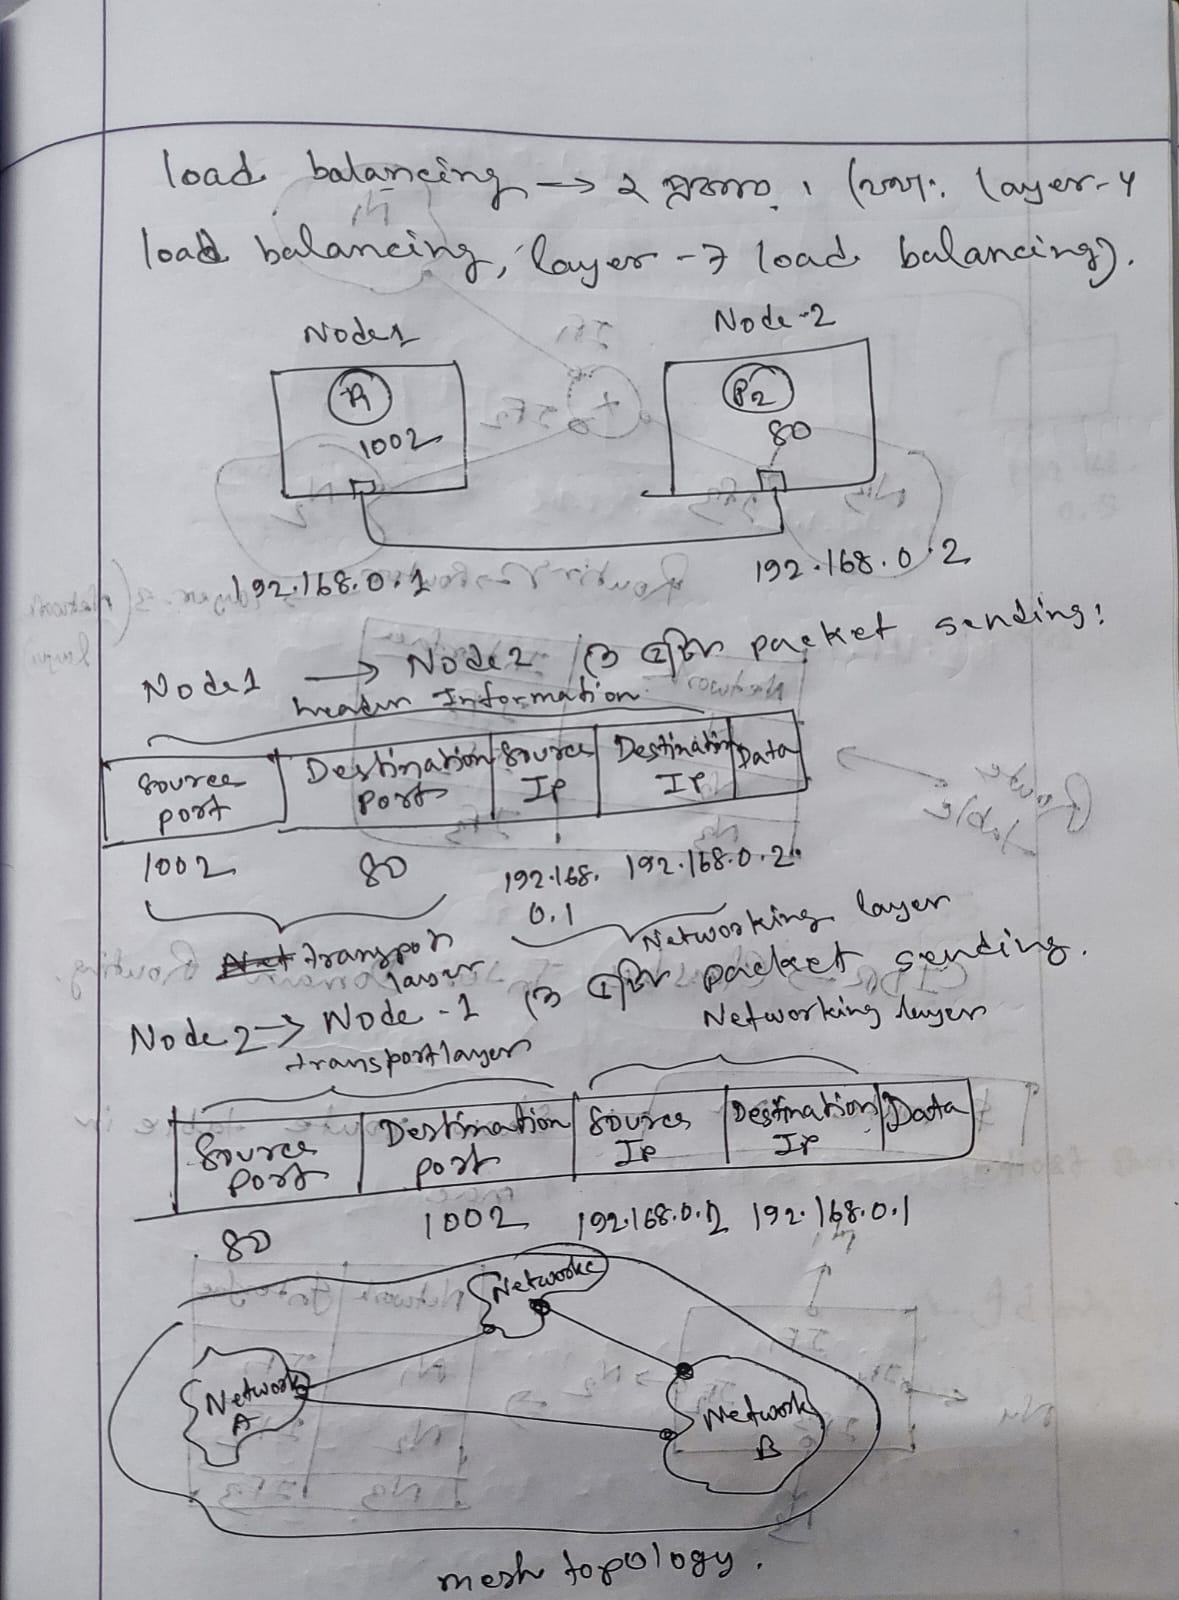 load balancing → ২ প্রকার। (যথা: layer-4
load balancing, layer-7 load balancing).
Node1
Node-2
P1
P2
1002
80
192.168.0.1
192.168.0.2
Node1 → Node2 packet sending:
header Information
Source port
Destination port
Source IP
Destination IP
Data
1002
80
192.168.0.1
192.168.0.2
transport layer
Networking layer
Node2 → Node-1 packet sending.
transport layer
Networking layer
Source port
Destination port
Source IP
Destination IP
Data
80
1002
192.168.0.2
192.168.0.1
Network C
Network A
Network B
mesh topology.